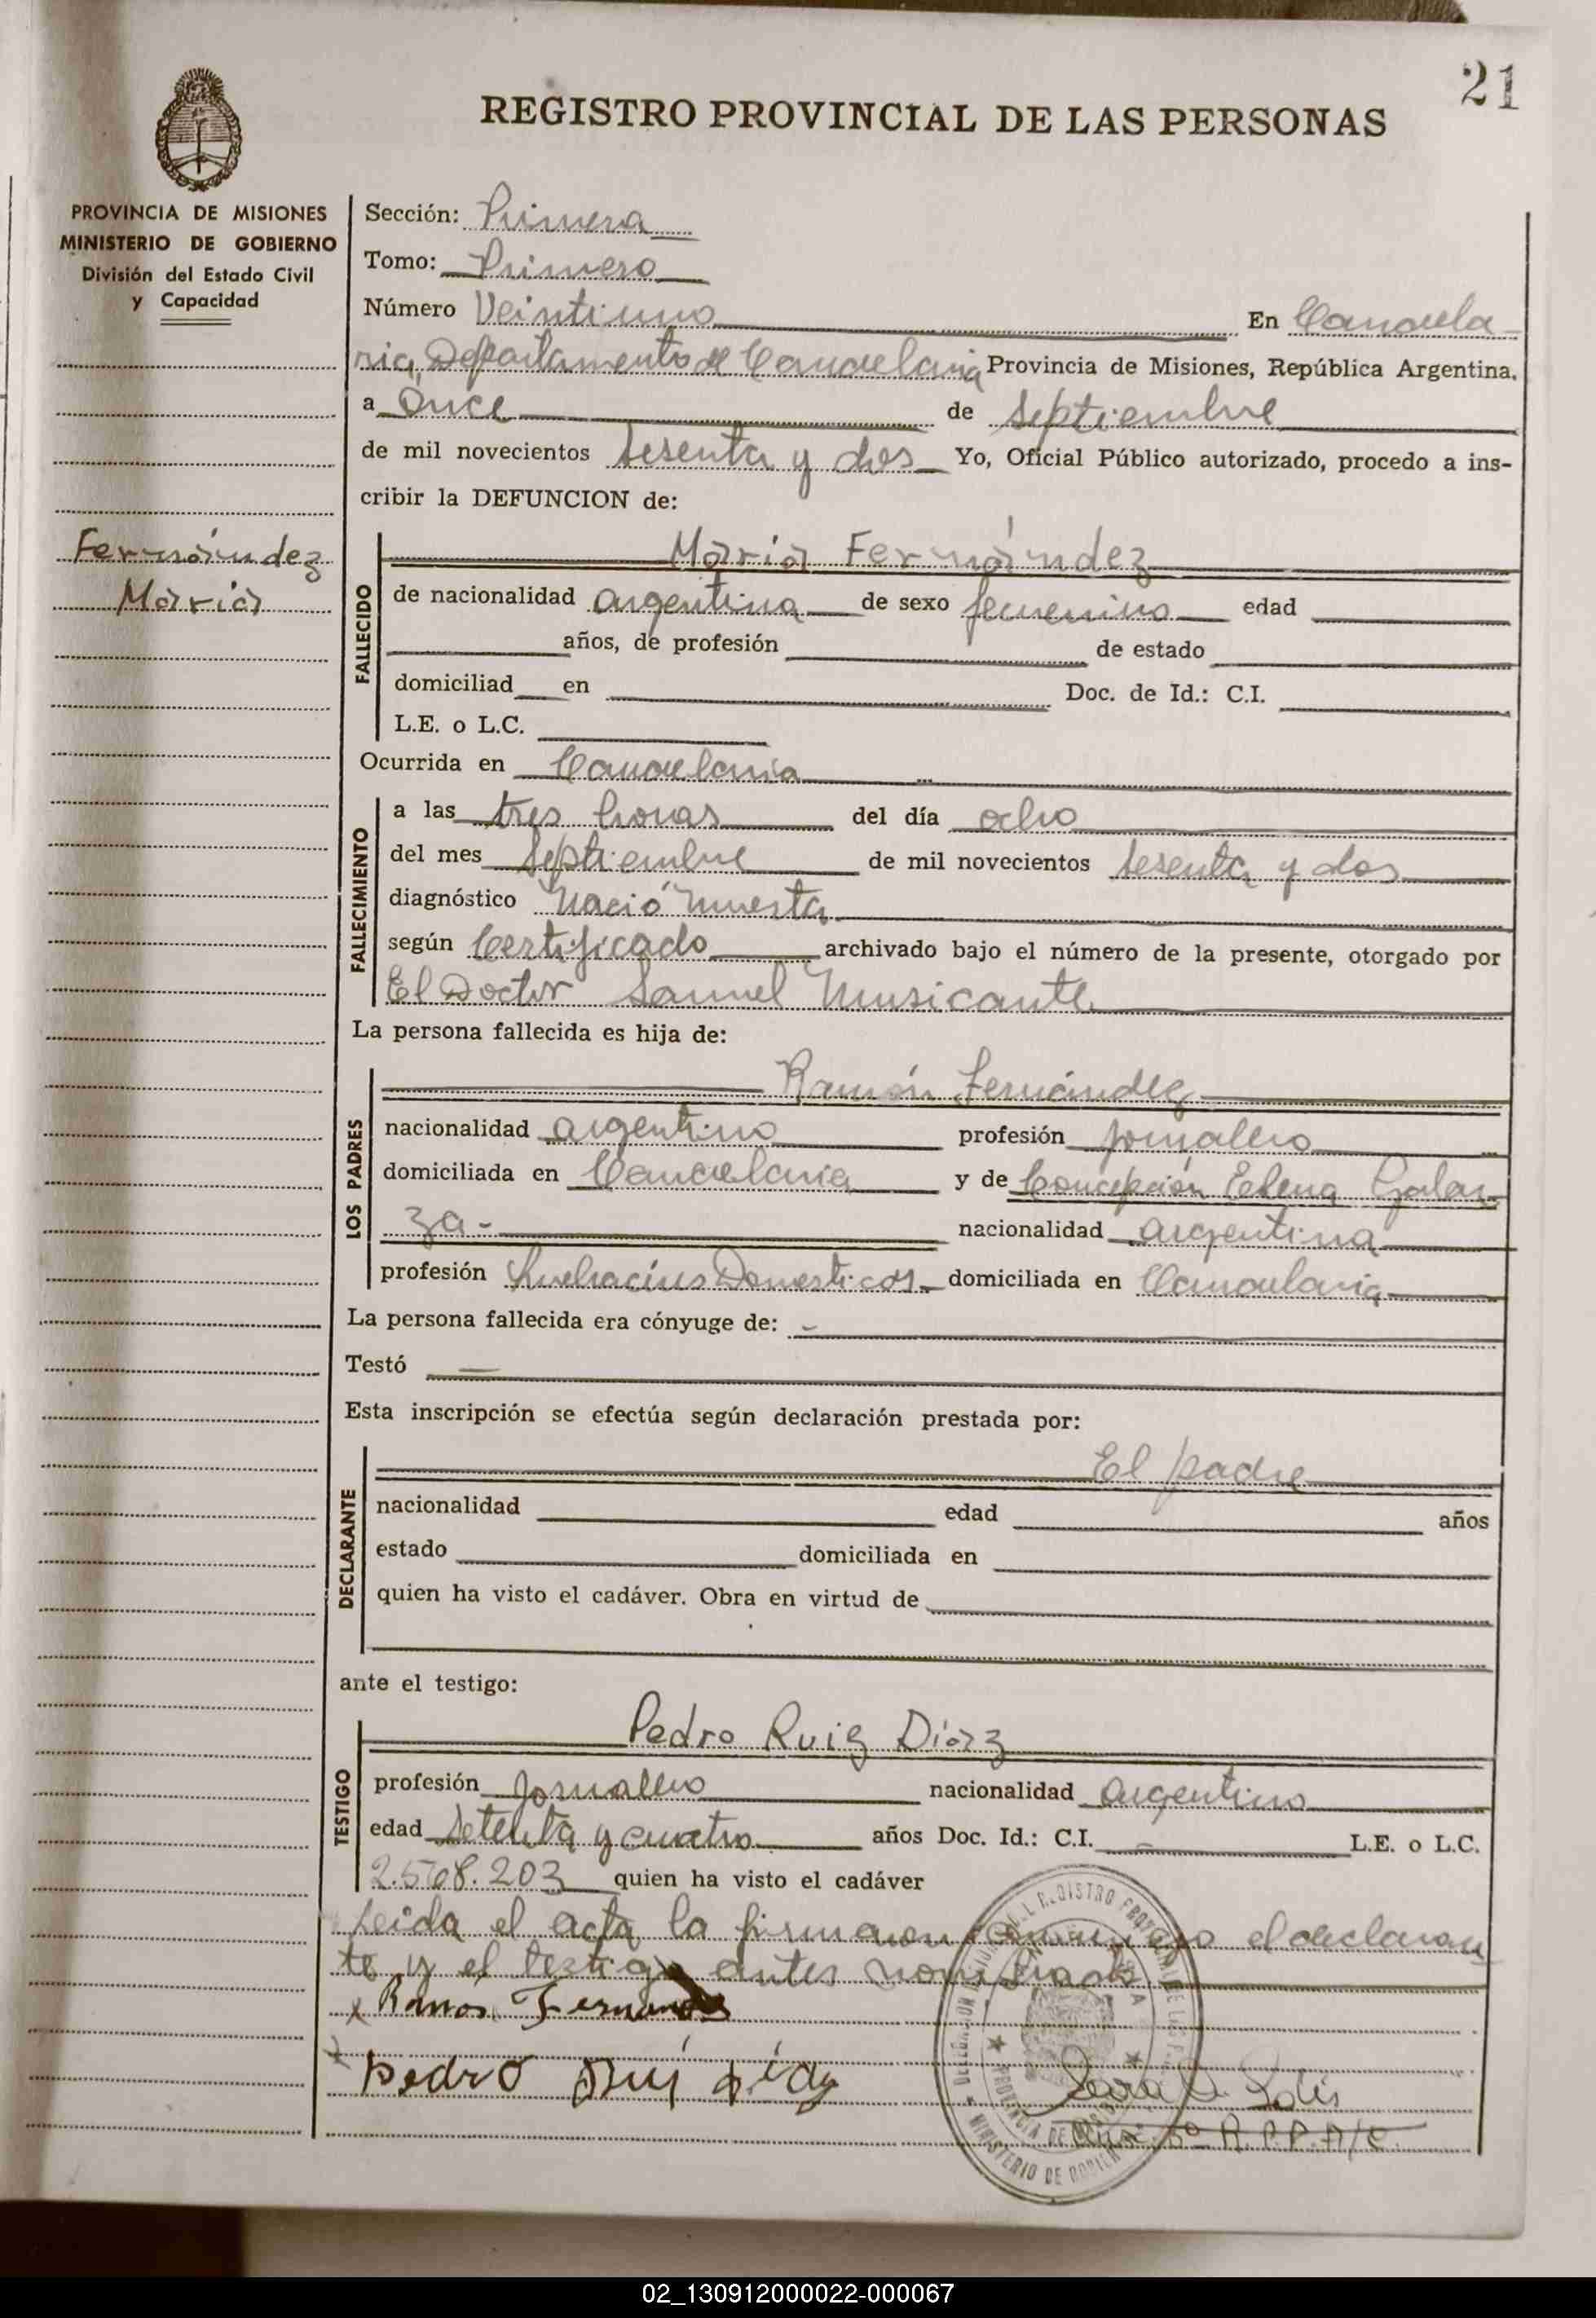 21
REGISTRO PROVINCIAL DE LAS PERSONAS
PROVINCIA DE MISIONES
MINISTERIO DE GOBIERNO
División del Estado Civil
y Capacidad
Sección: Primera
Tomo: Primero
Número Veintiuno En Candela
ria, Departamento de Candelaria Provincia de Misiones, República Argentina,
a Once de Septiembre
de mil novecientos sesenta y dos Yo, Oficial Público autorizado, procedo a ins-
cribir la DEFUNCION de:
Fernández
María
FALLECIDO
María Fernández
de nacionalidad argentina de sexo femenino edad
años, de profesión de estado
domiciliad en Doc. de Id.: C.I.
L.E. o L.C.
Ocurrida en Candelaria
FALLECIMIENTO
a las tres horas del día ocho
del mes Septiembre de mil novecientos sesenta y dos
diagnóstico Nació muerta
según Certificado archivado bajo el número de la presente, otorgado por
El Doctor Samuel Musicante
La persona fallecida es hija de:
LOS PADRES
Ramón Fernández
nacionalidad argentino profesión jornalero
domiciliada en Candelaria y de Concepción Elena Galar
za-
nacionalidad argentina
profesión Quehaceres Domesticos domiciliada en Candelaria
La persona fallecida era cónyuge de: -
Testó —
Esta inscripción se efectúa según declaración prestada por:
DECLARANTE
El padre
nacionalidad edad años
estado domiciliada en
quien ha visto el cadáver. Obra en virtud de
ante el testigo:
TESTIGO
Pedro Ruiz Díaz
profesión Jornalero nacionalidad argentino
edad Setenta y cuatro años Doc. Id.: C.I. — L.E. o L.C.
2.568.203 quien ha visto el cadáver
Leida el acta la firman conmigo el declaran
te y el testigo antes nombrado
x Ramos Fernandes
x Pedro Rui díaz
Sara Solis
R.P.P.
MINISTERIO DE GOBIERNO
PROVINCIA DE
02_130912000022-000067